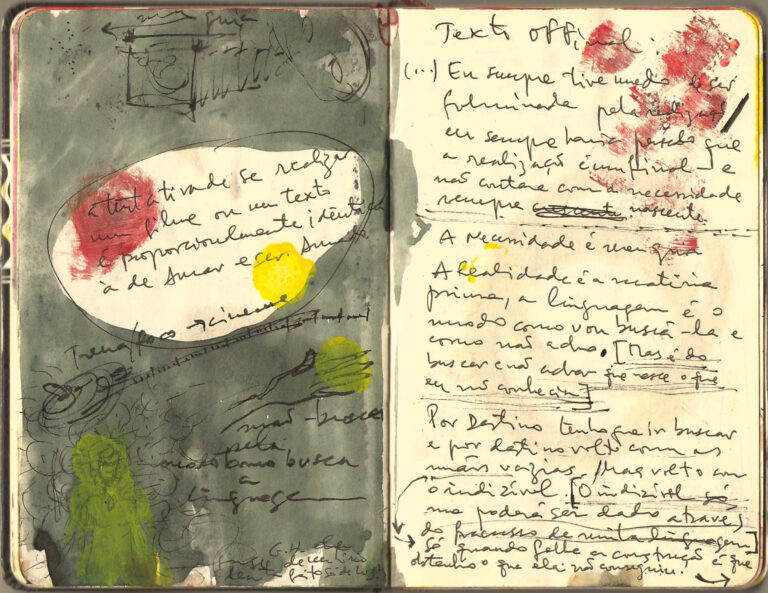 a tentativa de se realizar
um filme ou um texto
é proporcionalmente idêntica
à de Amar e ser Amado.
Trena/foco → cinema
mão-braço
pela
modo como busca
a
linguagem
G.H.
Texto Offinal.
(...) Eu sempre tive medo de ser
fulminada pela realização
eu sempre havia pensado que
a realização é um final] e
não contava com a necessidade
sempre nascente.
A necessidade é meu guia
A Realidade é a matéria
prima, a linguagem é o
modo como vou buscá-la e
como não acho. [Mas é do
buscar e não achar que nasce o que
eu não conhecia]
Por Destino tenho que ir buscar
e por destino volto com as
mãos vazias. Mas volto com
o indizível. [O indizível só
me poderá ser dado através
do fracasso de minha linguagem]
Só quando falha a construção é que
obtenho o que ela não conseguiu.